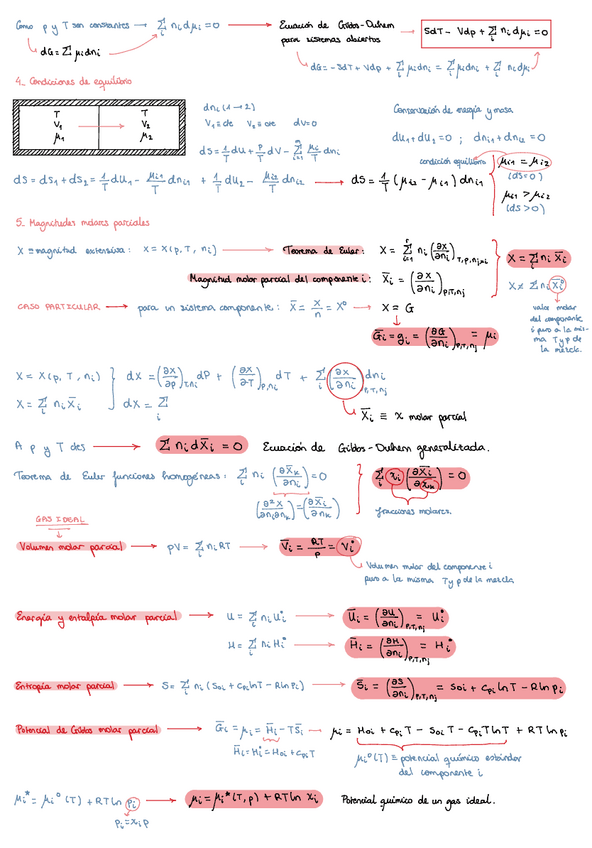 Como p y T son constantes → Σᵢ nᵢdμᵢ = 0 → Ecuación de Gibbs-Duhem para sistemas abiertos SdT - Vdp + Σᵢ nᵢ dμᵢ = 0
dG = Σᵢ μᵢdnᵢ
dG = -SdT + Vdp + Σᵢ μᵢdnᵢ = Σᵢ μᵢdnᵢ + Σᵢ nᵢdμᵢ
4_ Condiciones de equilibrio
T V₁ μ₁ → T V₂ μ₂
dnᵢ (1→2)
V₁ = cte V₂ = cte dV = 0
dS = 1/T dU + P/T dV - Σᵢ₌₁ μᵢ/T dnᵢ
Conservación de energía y masa
dU₁ + dU₂ = 0 ; dnᵢ₁ + dnᵢ₂ = 0
condición equilibrio μᵢ₁ = μᵢ₂
(dS = 0)
μᵢ₁ > μᵢ₂
(dS > 0)
dS = dS₁ + dS₂ = 1/T dU₁ - μᵢ₁/T dnᵢ₁ + 1/T dU₂ - μᵢ₂/T dnᵢ₂ → dS = 1/T (μᵢ₂ - μᵢ₁) dnᵢ₁
5_ Magnitudes molares parciales
X ≡ magnitud extensiva: X = X(p, T, nᵢ) → Teorema de Euler: X = Σᵢ₌₁ nᵢ (∂X/∂nᵢ)T,p,nj≠i
X = Σᵢ nᵢ X̄ᵢ
Magnitud molar parcial del componente i: X̄ᵢ = (∂X/∂nᵢ)p,T,nj
X ≠ Σ nᵢ Xᵢ°
valor molar
del componente
i puro a la mis-
ma T y p de
la mezcla.
CASO PARTICULAR → para un sistema componente: X̄ = X/n = X° → X = G
Ḡᵢ = gᵢ = (∂G/∂nᵢ)p,T,nj = μᵢ
X = X(p, T, nᵢ) } dX = (∂X/∂p)T,nᵢ dP + (∂X/∂T)p,nᵢ dT + Σᵢ (∂X/∂nᵢ)p,T,nj dnᵢ
X = Σᵢ nᵢ X̄ᵢ } dX = Σᵢ
X̄ᵢ ≡ X molar parcial
A p y T ctes → Σᵢ nᵢ dX̄ᵢ = 0 Ecuación de Gibbs-Duhem generalizada.
Teorema de Euler funciones homogéneas: Σᵢ nᵢ (∂X̄k/∂nᵢ) = 0
(∂²X/∂nᵢ∂nk) = (∂X̄ᵢ/∂nk)
Σᵢ xᵢ (∂X̄ᵢ/∂xk) = 0
fracciones molares.
GAS IDEAL
Volumen molar parcial → pV = Σᵢ nᵢRT → V̄ᵢ = RT/P = Vᵢ°
Volumen molar del componente i
puro a la misma T y p de la mezcla
Energía y entalpía molar parcial → U = Σᵢ nᵢ Uᵢ° → Ūᵢ = (∂U/∂nᵢ)P,T,nj = Uᵢ°
H = Σᵢ nᵢ Hᵢ° → H̄ᵢ = (∂H/∂nᵢ)P,T,nj = Hᵢ°
Entropía molar parcial → S = Σᵢ nᵢ (S₀ᵢ + cpᵢ lnT - R ln Pᵢ) → S̄ᵢ = (∂S/∂nᵢ)P,T,nj = S₀ᵢ + cpᵢ lnT - R ln pᵢ
Potencial de Gibbs molar parcial → Ḡᵢ = μᵢ = H̄ᵢ - TS̄ᵢ → μᵢ = H₀ᵢ + cpᵢT - S₀ᵢT - cpᵢT lnT + RT ln pᵢ
H̄ᵢ = Hᵢ° = H₀ᵢ + cpᵢT
μᵢ°(T) ≡ potencial químico estándar
del componente i
μᵢ* = μᵢ°(T) + RT ln pᵢ → μᵢ = μᵢ*(T, p) + RT ln xᵢ Potencial químico de un gas ideal.
pᵢ = xᵢ p